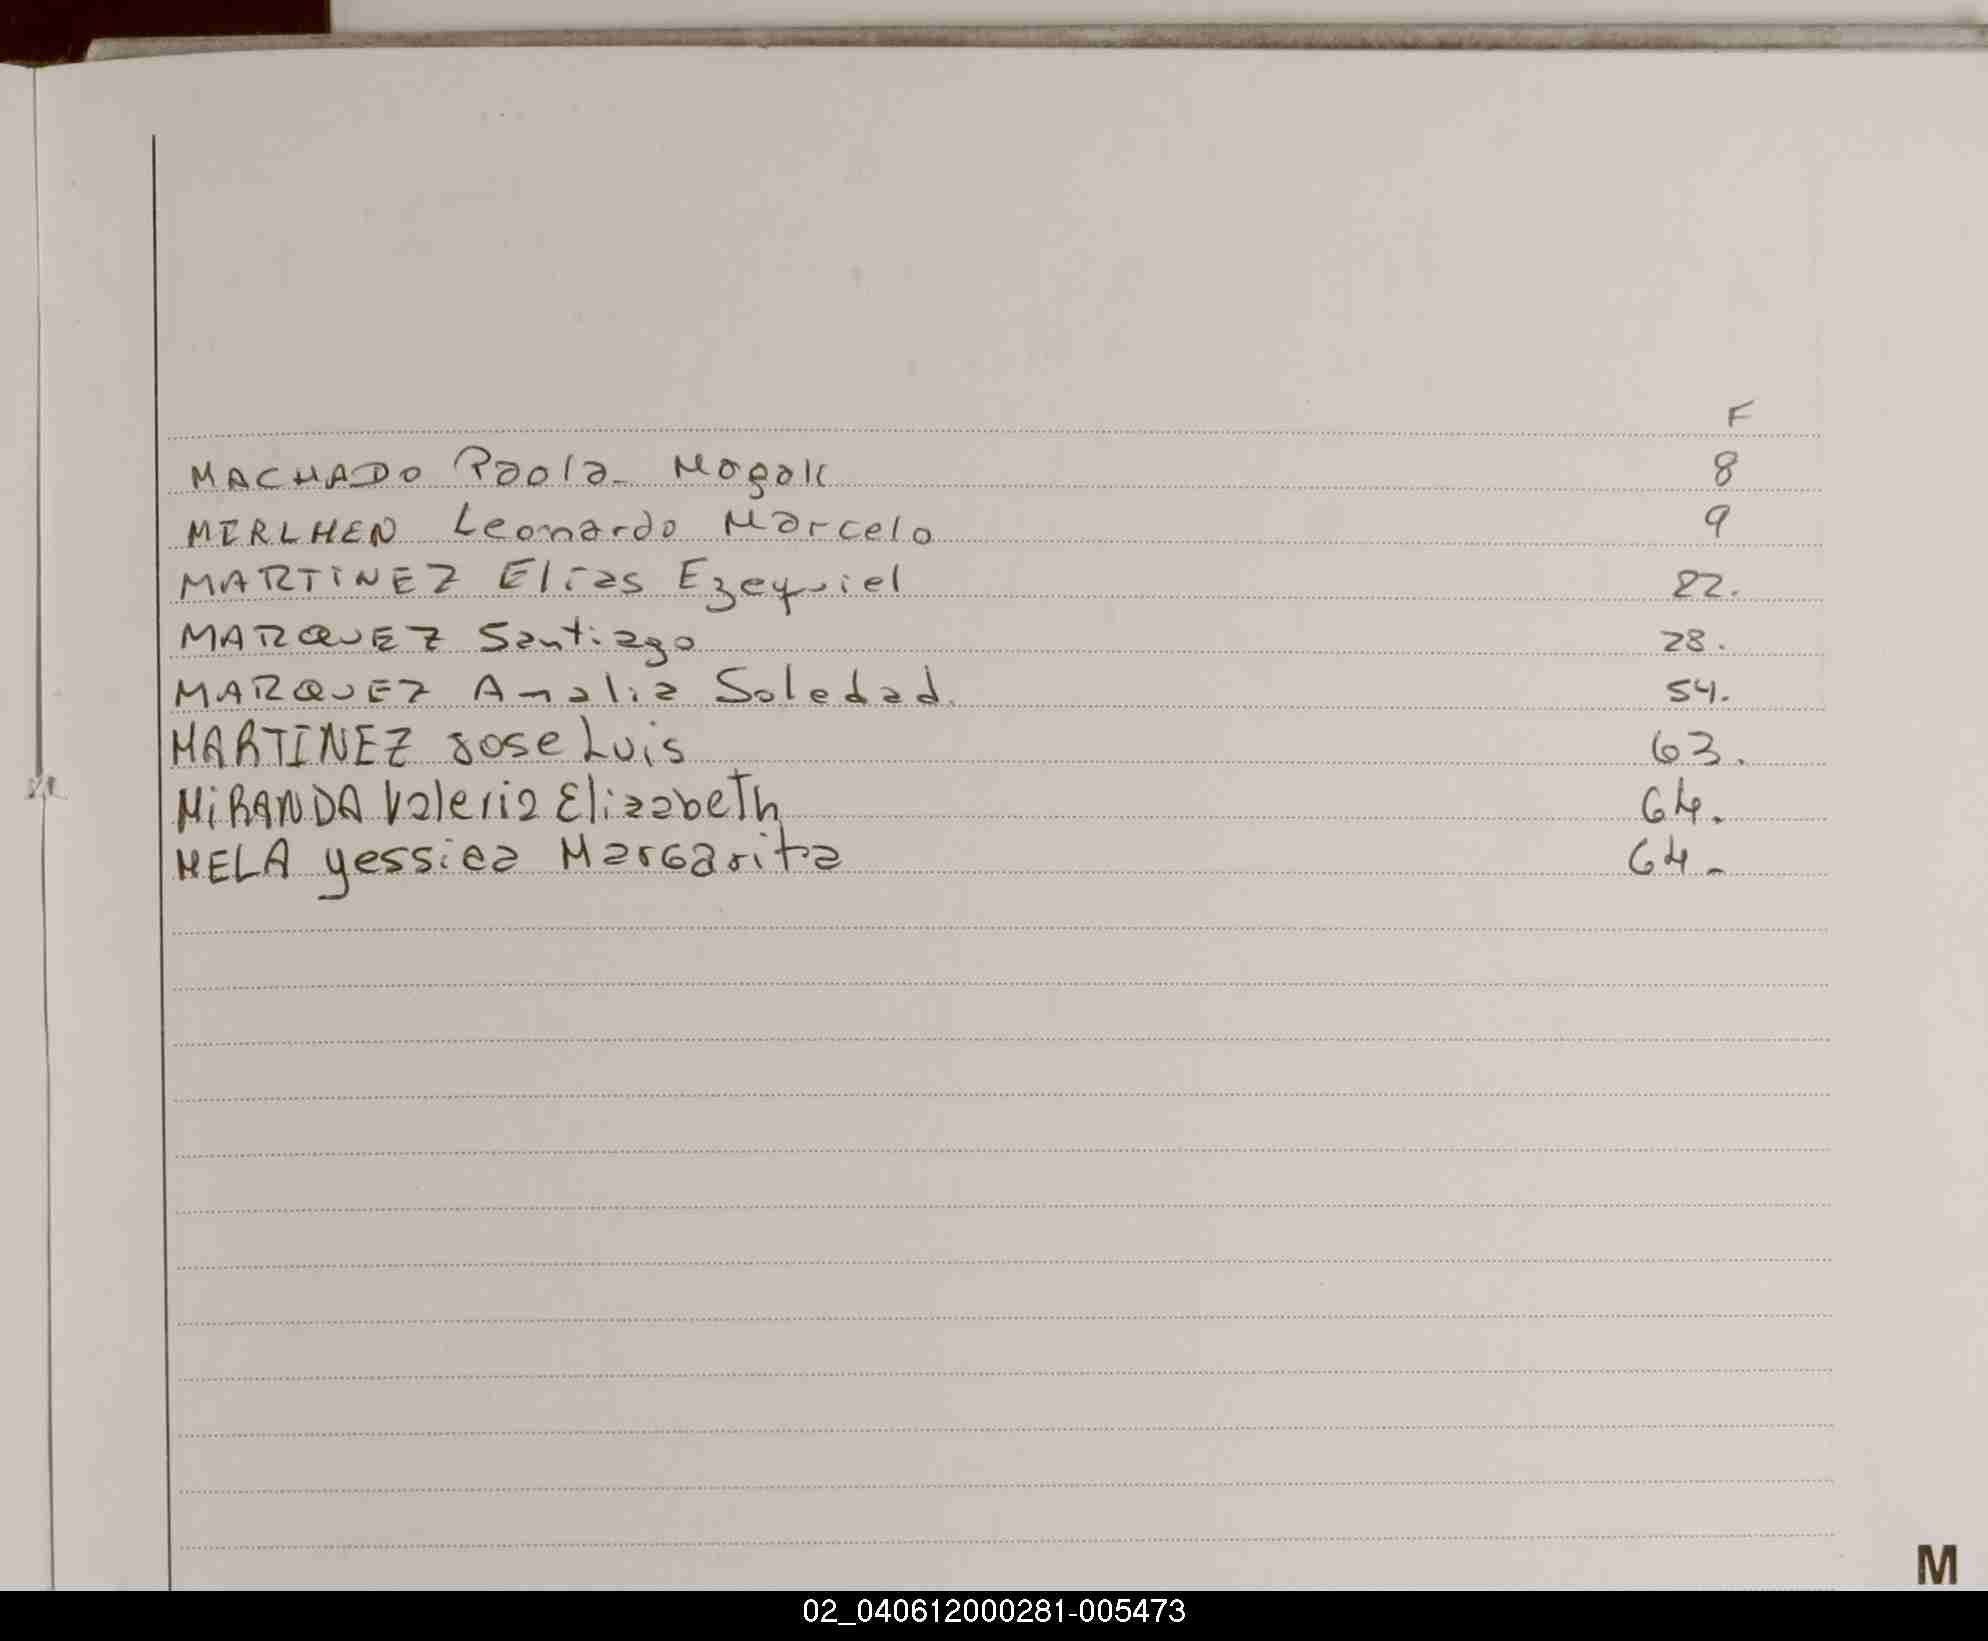 F
MACHADO Paola Magali 8
MIRLHEN Leonardo Marcelo 9
MARTINEZ Elias Ezequiel 22.
MARQUEZ Santiago 28.
MARQUEZ Analia Soledad. 54.
MARTINEZ Jose Luis 63.
MiRANDA Valeria Elizabeth 64.
MELA Yessica Margarita 64-
M
02_040612000281-005473